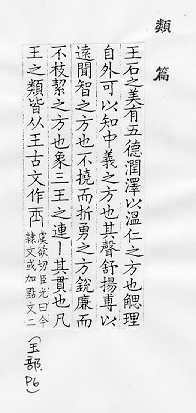 類篇
王石之美有五德潤澤以溫仁之方也䚡理
自外可以知中義之方也其聲舒揚尃以
遠聞智之方也不撓而折勇之方銳廉而
不枝絜之方也象三王之連丨其貫也凡
王之類皆从王古文作𤣪
虞欲切臣光曰今
隸文或加點文二
(玉部, P6)